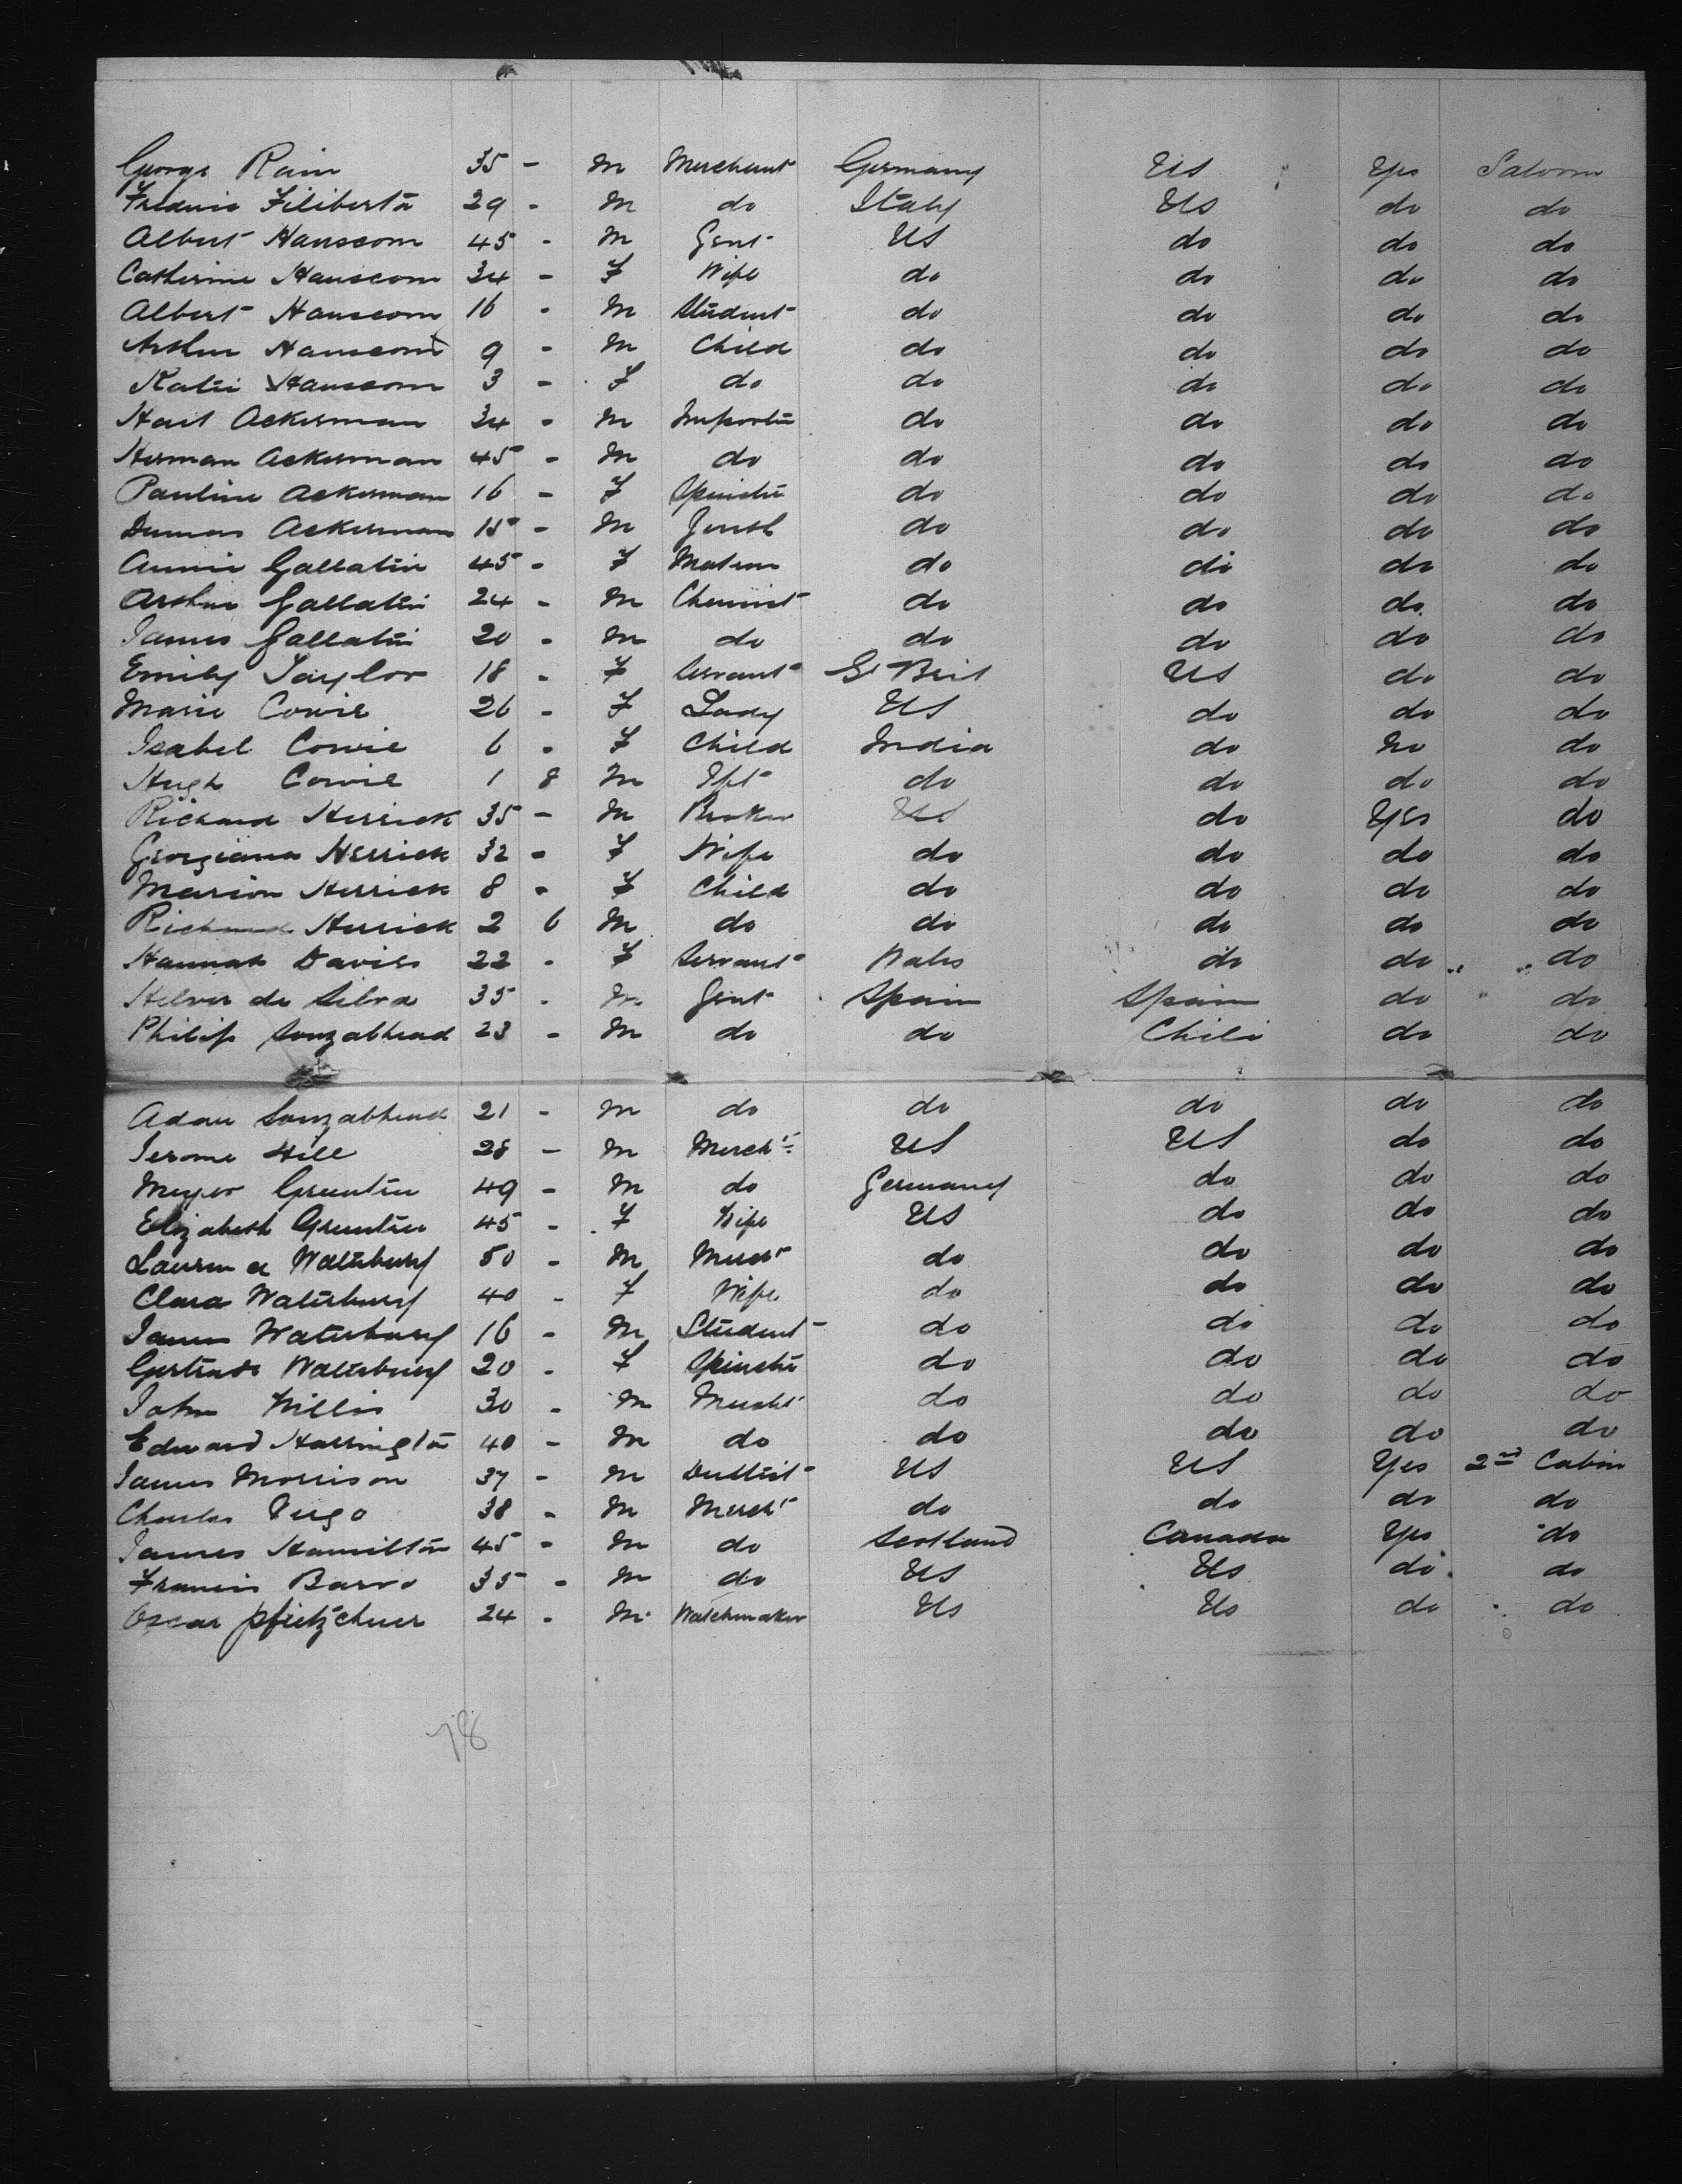 George Rain 35 - M Merchant Germany US Yes Saloon
Frederic Filiberto 29 - M do Italy US do do
Albert Hanscom 45 - M Gent US do do do
Catherine Hanscom 34 - F Wife do do do do
Albert Hanscom 16 - M Student do do do do
Arthur Hanscom 9 - M Child do do do do
Katie Hanscom 3 - F do do do do do
Hart Ackerman 34 - M Importer do do do do
Herman Ackerman 45 - M do do do do do
Pauline Ackerman 16 - F Spinster do do do do
Ackerman 15 - M do do do do
Annie Gallatin 45 - F Matron do do do do
Arthur Gallatin 24 - M Chemist do do do do
James Gallatin 20 - M do do do do do
Emily Taylor 18 - F Servant Gt Brit US do do
Marie Cowie 26 - F Lady US do do do
Isabel Cowie 6 - F Child India do No do
Hugh Cowie 1 8 M Ift do do do do
Richard Herrick 35 - M Broker US do Yes do
Georgiana Herrick 32 - F Wife do do do do
Marion Herrick 8 - F Child do do do do
Richard Herrick 2 6 M do do do do do
Hannah Davies 22 - F Servant Wales do do do
de Silva 35 - M Gent Spain Spain do do
Philip 23 - M do do Chili do do
Adan 21 - M do do do do do
Jerome Hill 28 - M Merch't US US do do
Meyer 49 - M do Germany do do do
Elizabeth 45 - F Wife US do do do
Waterbury 50 - M Mercht do do do do
Clara Waterbury 40 - F Wife do do do do
James Waterbury 16 - M Student do do do do
Gertrude Waterbury 20 - F Spinster do do do do
John Willis 30 - M Mercht do do do do
Edward Harrington 40 - M do do do do do
James Morrison 37 - M US US Yes 2nd Cabin
Charles 38 - M Mercht do do do do
James Hamilton 45 - M do Scotland Canada Yes do
Francis 35 - M do US US do do
Oscar Pfietzchner 24 - M Watchmaker US US do do
78